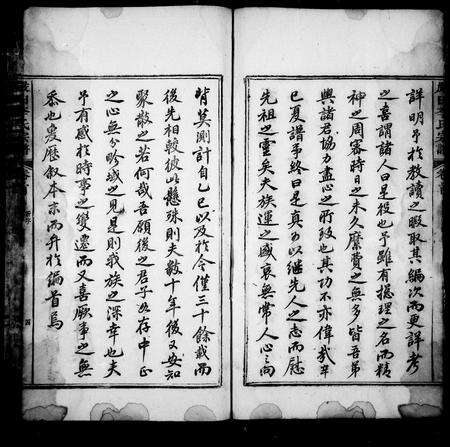 詳明予於教讀之暇取其編次而更詳考
之喜謂諸人曰是役也予雖有總理之名而精
神之周審時日之未久糜費之無多皆吾弟
與諸君協力盡心之所致也其功不亦偉哉辛
巳夏譜事終曰是真可以繼先人之志而慰
先祖之靈矣夫族運之盛衰無常人心之向
背莫測計自乙巳以及於今僅三十餘載而
後先相較彼此懸殊則夫數十年後又安知
聚散之若何哉吾願後之君子如存中正
之心無分畛域之見是則我族之深幸也夫
予有感於時事之變遷而又喜厥事之無
忝也爰歷叙本末而弁於編首焉